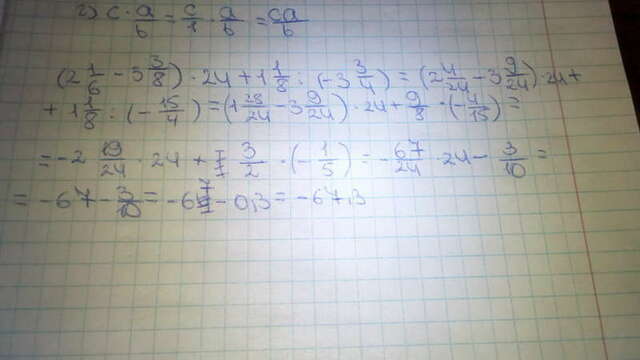 2) c · a/b = c/1 · a/b = ca/b
(2 1/6 - 3 3/8) · 24 + 1 1/8 : (-3 3/4) = (2 4/24 - 3 9/24) · 24 +
+ 1 1/8 : (- 15/4) = (1 28/24 - 3 9/24) · 24 + 9/8 · (- 4/15) =
= -2 19/24 · 24 + 3/2 · (- 1/5) = - 67/24 · 24 - 3/10 =
= -67 - 3/10 = -67 - 0,3 = -67,3